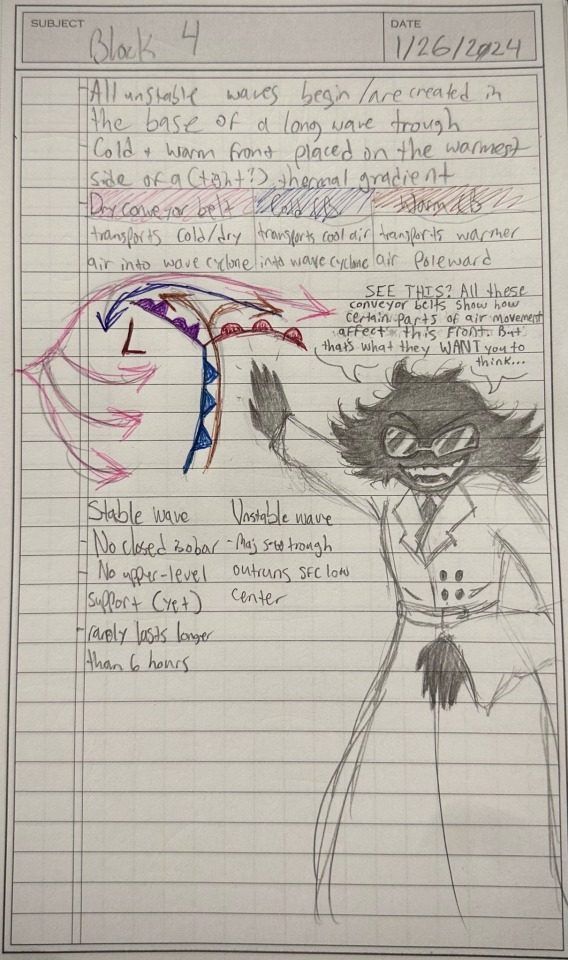 SUBJECT
Block 4
DATE
1/26/2024
- All unstable waves begin / are created in
the base of a long wave trough
- Cold + warm front placed on the warmest
side of a (tight?) thermal gradient
- Dry conveyor belt | Cold CB | Warm CB
transports cold/dry | transports cool air | transports warmer
air into wave cyclone | into wave cyclone | air poleward
SEE THIS? All these
conveyor belts show how
certain parts of air movement
affects this front. But
thats what they WANT you to
think...
L
Stable wave
- No closed isobar
- No upper-level
support (yet)
- rarely lasts longer
than 6 hours
Unstable wave
- Maj trough
outruns SFC low
center